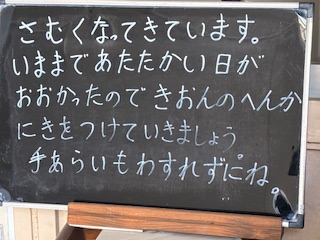 さむくなってきています。
いままであたたかい日が
おおかったのできおんのへんか
にきをつけていきましょう
手あらいもわすれずにね。